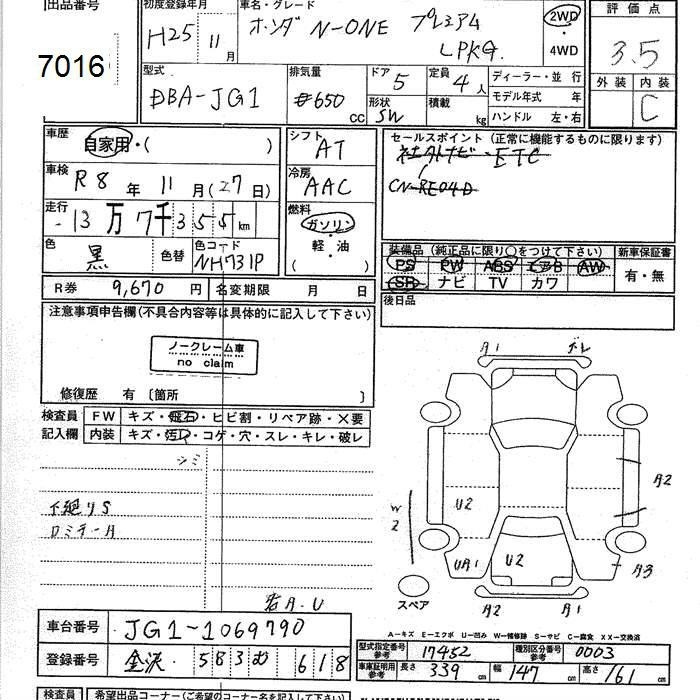 出品番号 初度登録年月 車名・グレード 評価点
7016
H25 年 11月 ホンダ N-ONE プレミアム 2WD・4WD 3.5
LPKG
型式 排気量 ドア 5 定員 4人 ディーラー・並行 外装 内装
DBA-JG1 #650 CC 形状 SW 積載 kg モデル年式 年 C
ハンドル 左・右
車歴 自家用・( ) シフト AT セールスポイント (正常に機能するものに限ります)
社外ナビ・ETC
車検 R8年 11月(27日) 冷房 AAC CN-RE04D
走行 13万7千355km 燃料 ガソリン
色 黒 色替 色コード NH731P 軽・油 ( )
装備品 (純正品に限り○をつけて下さい) 新車保証書
PS PW ABS エアB AW 有・無
SR ナビ TV カワ
R券 9,670円 名変期限 月 日 後日品
注意事項申告欄(不具合内容等は具体的に記入して下さい)
ノークレーム車
no claim
修復歴 有 〔箇所 〕
検査員 FW キズ・飛石・ヒビ割・リペア跡・X要
記入欄 内装 キズ・汚レ・コゲ・穴・スレ・キレ・破レ
シミ
下廻りS
ロミラーA
若A.U
A1
A2
A3
U2
W2
UA1
U2
A2 A1
スペア
A…キズ E…エクボ U…凹み W…補修跡 S…サビ C…腐食 XX…交換済
車台番号 JG1-1069790
型式指定番号 参考 17452 種別区分番号 参考 0003
登録番号 金沢 583 む 618
車庫証明用 参考 長さ 339cm 幅 147cm 高さ 161cm
検査員 希望出品コーナー(ご希望のコーナー名を記入して下さい)